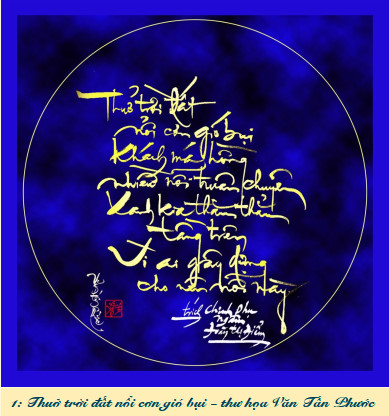 Thuở trời đất
nổi cơn gió bụi
Khách má hồng
nhiều nỗi truân chuyên
Xanh kia thăm thẳm
tầng trên
Vì ai gây dựng
cho nên nỗi này
trích Chinh Phụ
Ngâm
Đoàn Thị Điểm
1: Thuở trời đất nổi cơn gió bụi - thư họa Văn Tấn Phước